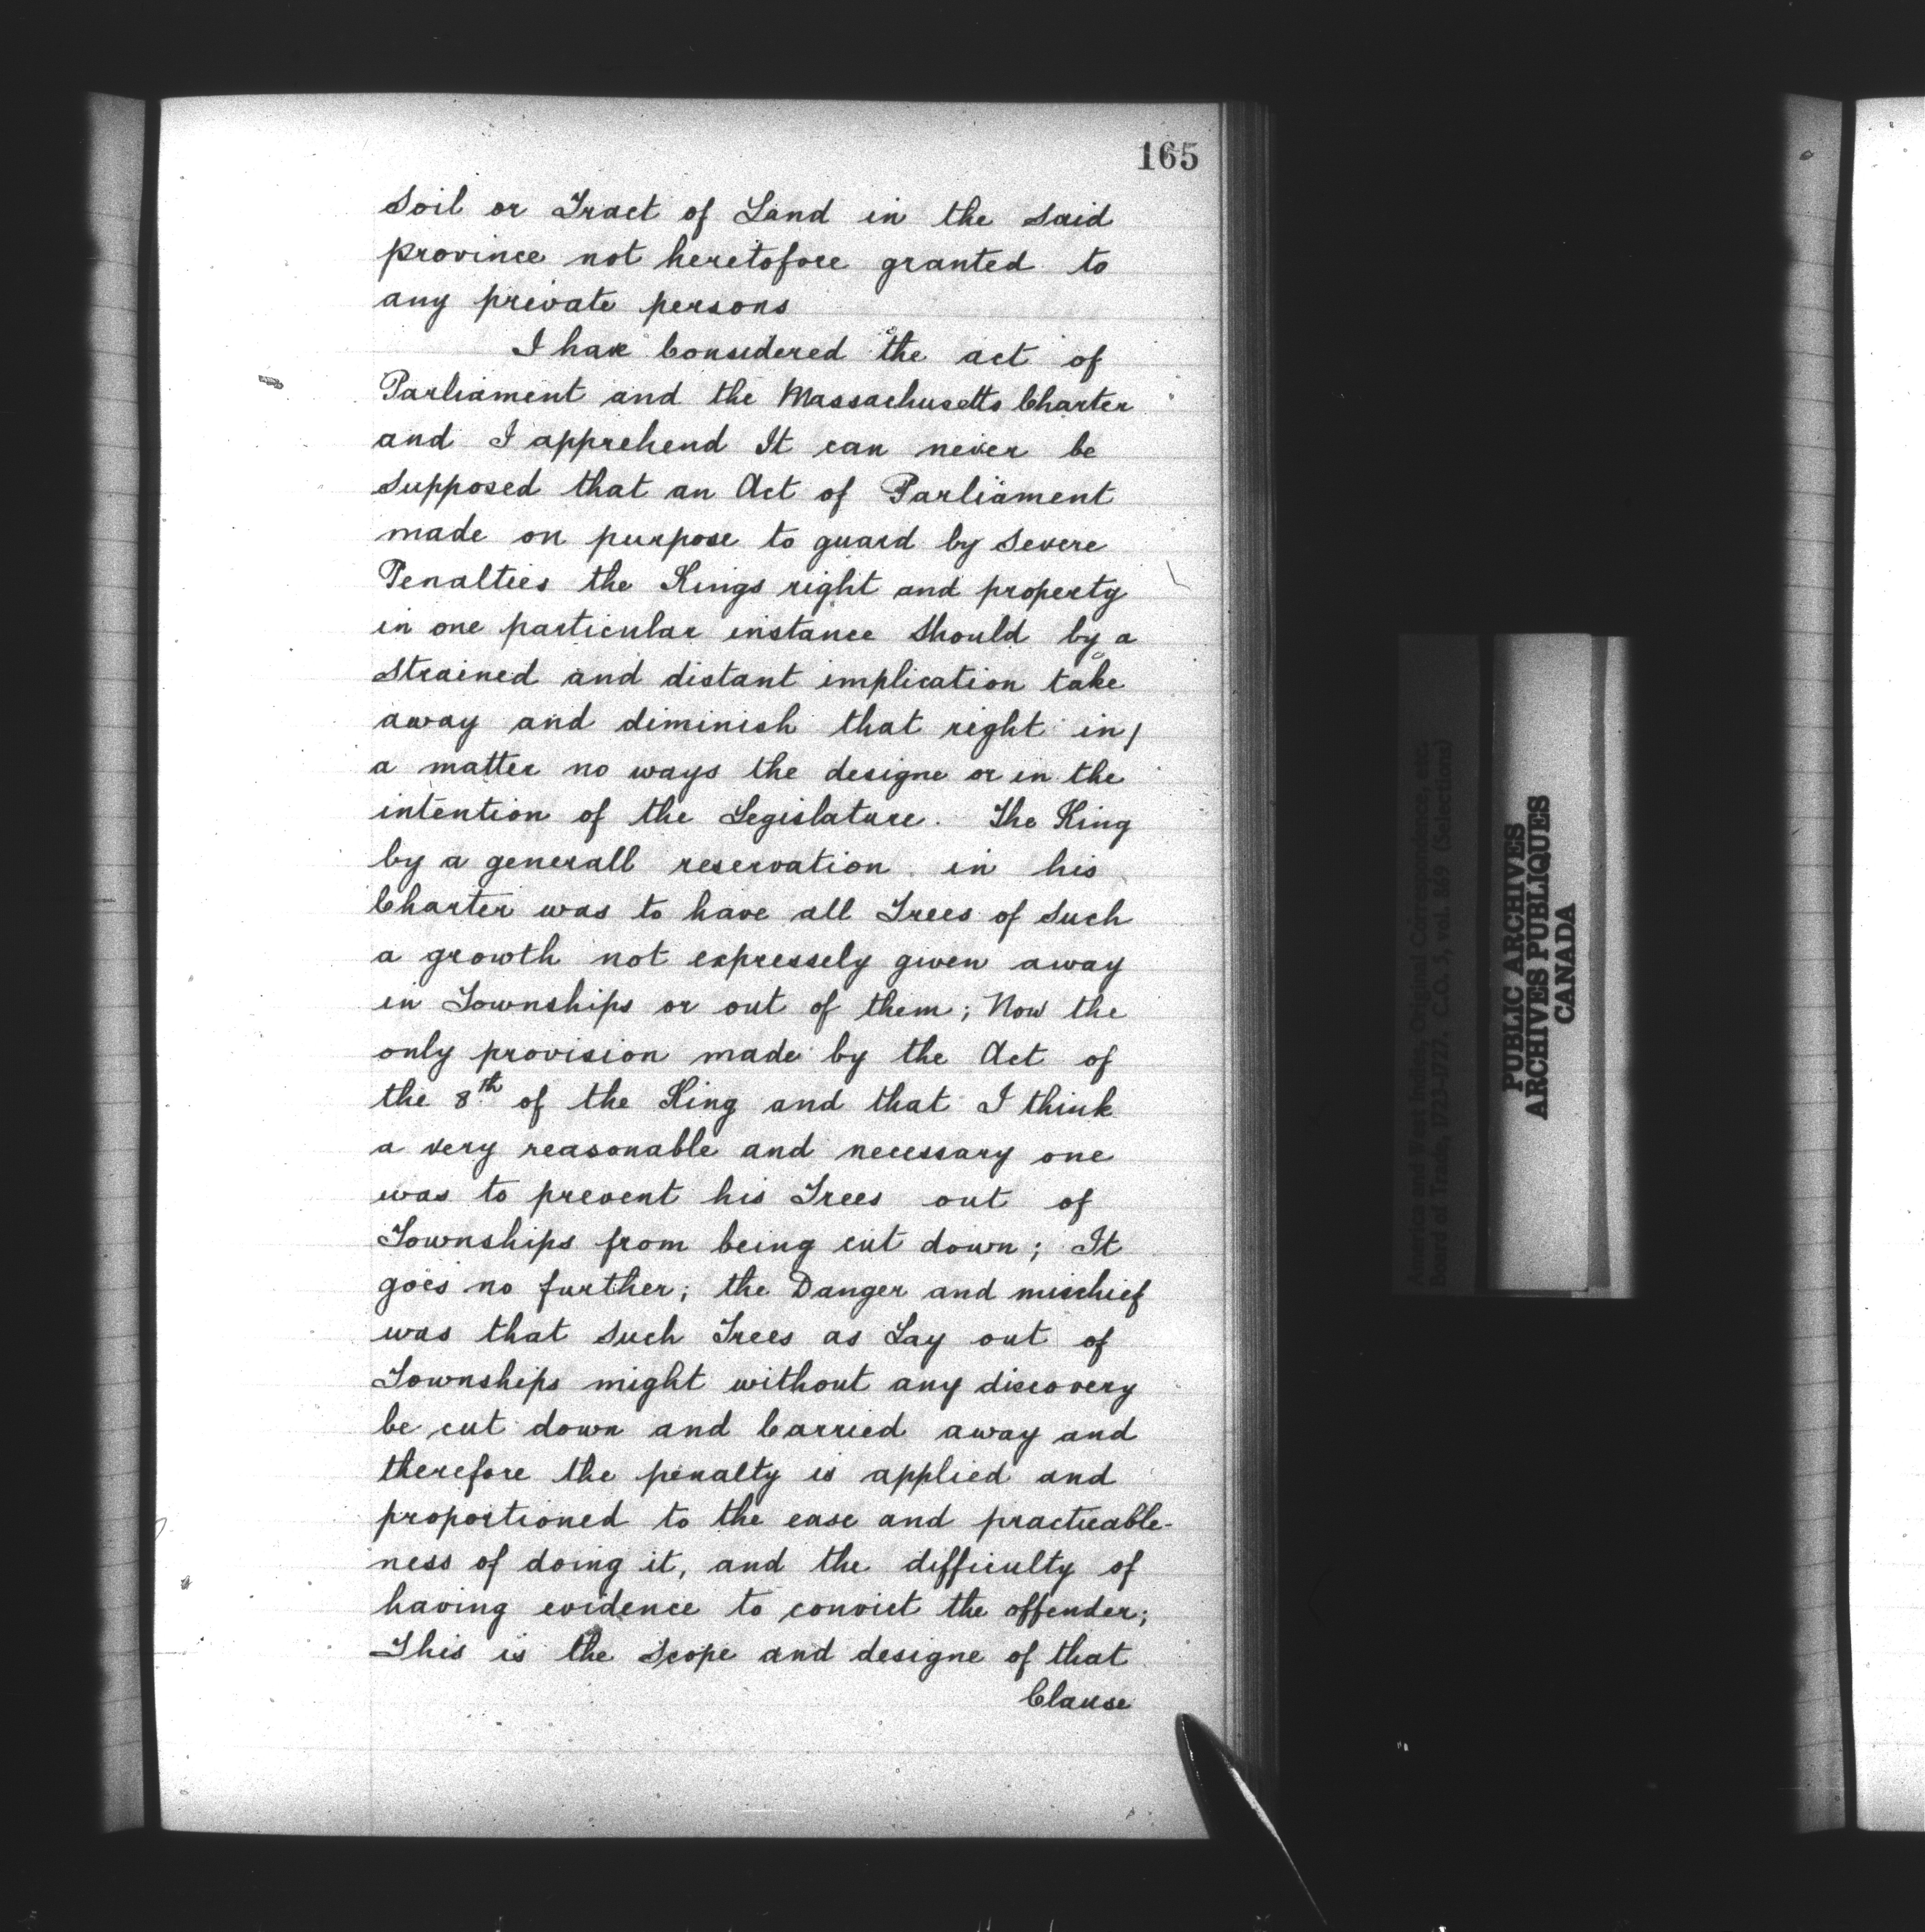 165
Soil or Tract of Land in the Said
province not heretofore granted to
any private persons
I have Considered the act of
Parliament and the Massachusetts Charter
and I apprehend It can never be
Supposed that an Act of Parliament
made on purpose to guard by Severe
Penalties the Kings right and property
in one particular instance Should by a
Strained and distant implication take
away and diminish that right in/
a matter no ways the designe or in the
intention of the Legislature. The King
by a generall reservation in his
Charter was to have all Trees of Such
a growth not expressely given away
in Townships or out of them; Now the
only provision made by the Act of
the 8th of the King and that I think
a very reasonable and necessary one
was to prevent his Trees out of
Townships from being cut down; It
goes no further; the Danger and mischief
was that Such Trees as Lay out of
Townships might without any discovery
be cut down and Carried away and
therefore the penalty is applied and
proportioned to the ease and practicable-
ness of doing it, and the difficulty of
having evidence to convict the offender;
This is the Scope and designe of that
Clause
America and West Indies, Original Correspondence, etc.
Board of Trade, 1723-1727. C.O. 5, vol. 869 (Selections)
PUBLIC ARCHIVES
ARCHIVES PUBLIQUES
CANADA